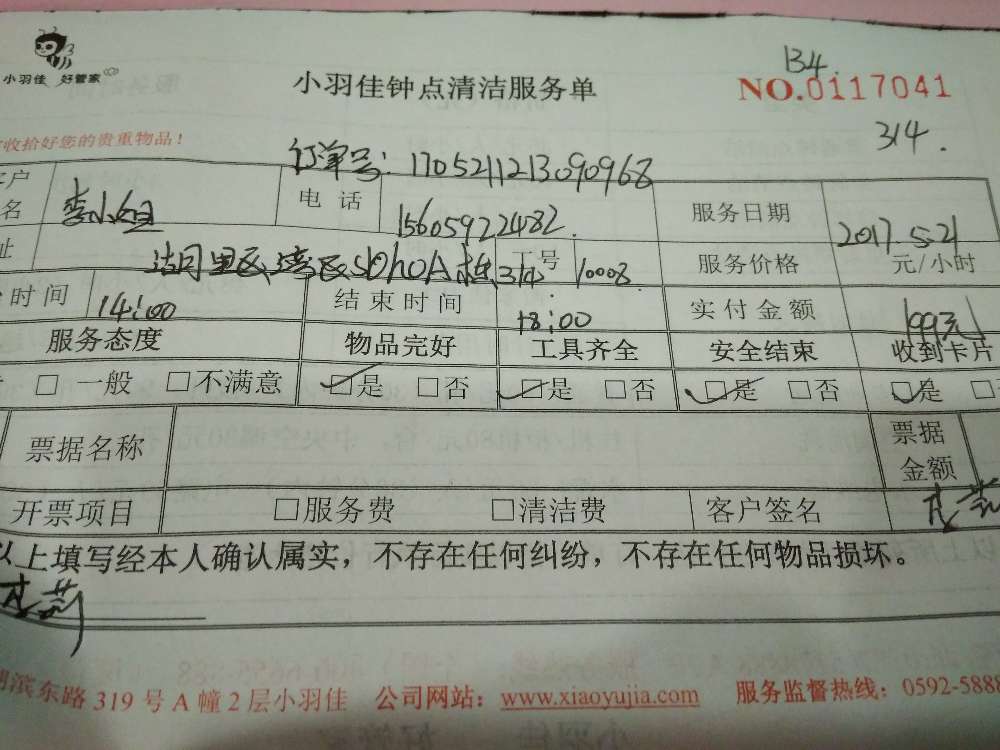 134.
小羽佳 好管家
小羽佳钟点清洁服务单
NO.0117041
收拾好您的贵重物品！
314.
订单号：1705211213090968
客户
名
李小姐
电 话
15605922482.
服务日期
2017.5.21
址
湾区SOHOA栋314
工号
10008
服务价格
元/小时
时间
14:00
结束时间
18:00
实付金额
199元
服务态度 物品完好 工具齐全 安全结束 收到卡片
□ 一般 □不满意 ☑是 □否 ☑是 □否 ☑是 □否 ☑是 □
票据名称
票据
金额
开票项目 □服务费 □清洁费 客户签名
以上填写经本人确认属实，不存在任何纠纷，不存在任何物品损坏。
湖滨东路319号A幢2层小羽佳 公司网站：www.xiaoyujia.com 服务监督热线：0592-5888